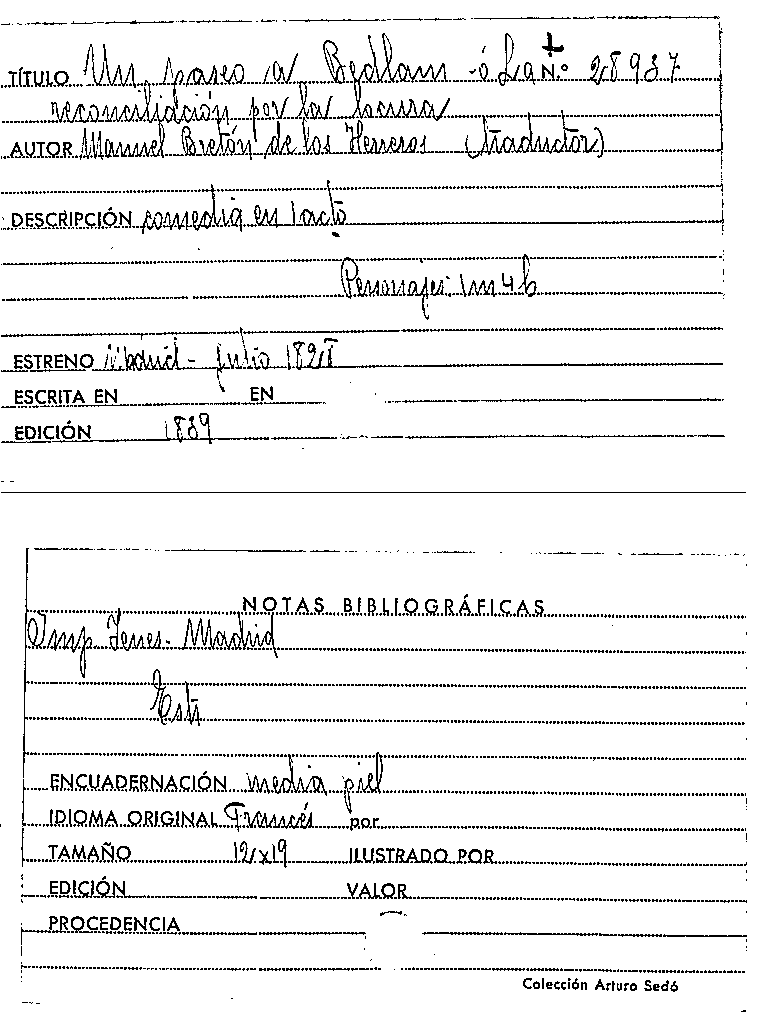 TÍTULO Un paseo a Bedlam - ó La N.º 28937
reconciliación por la locura
AUTOR Manuel Bretón de los Herreros (traductor)
DESCRIPCIÓN comedia en 1 acto
Personajes: 1m 4h
ESTRENO Madrid - Julio 1828
ESCRITA EN EN
EDICIÓN 1839
NOTAS BIBLIOGRÁFICAS
Imp Yenes. Madrid
ENCUADERNACIÓN media piel
IDIOMA ORIGINAL Francés por
TAMAÑO 12x19 ILUSTRADO POR
EDICIÓN VALOR
PROCEDENCIA
Colección Arturo Sedó